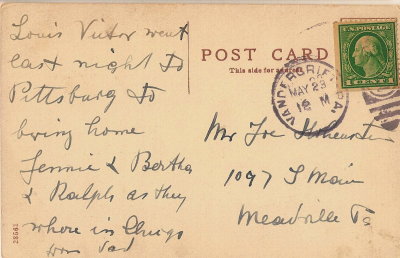 Louis Victor went
last night to
Pittsburg to
bring home
Jennie & Bertha
& Ralph as they
where in Chicgo
Dad
28661
POST CARD
This side for address
VANDERGRIFT PA.
MAY 23
12 M
U.S. POSTAGE
Mr Joe
1097 S Main
Meadville Pa